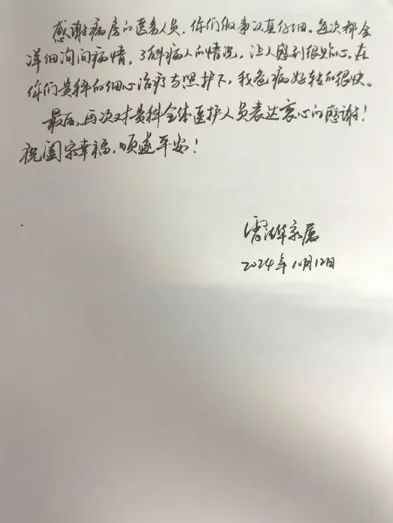 感谢病房的医务人员，你们做事认真仔细。每次都会
详细询问病情，了解病人的情况，让人感到很贴心。在
你们贵科的细心治疗与照护下，我爸病好转的很快。
最后，再次对贵科全体医护人员表达衷心的感谢！
祝阖家幸福，顺遂平安！
家属
2024年10月12日